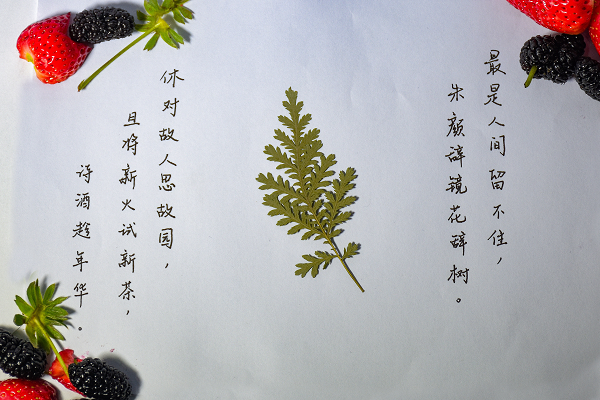 最是人间留不住，
朱颜辞镜花辞树。
休对故人思故园，
且将新火试新茶，
诗酒趁年华。